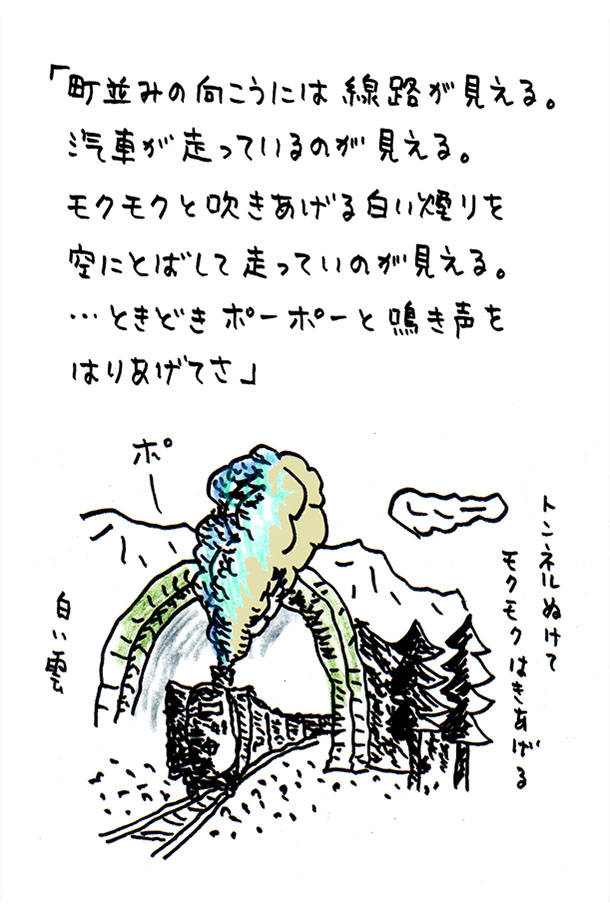 「町並みの向こうには 線路が見える。
汽車が走っているのが見える。
モクモクと吹きあげる白い煙りを
空にとばして走っていのが見える。
…ときどきポーポーと鳴き声を
はりあげてさ」
ポー
トンネルぬけて
モクモクはきあげる
白い雲